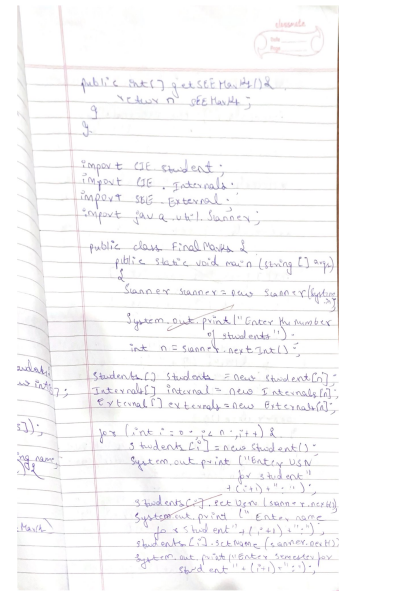 classmate
Date
Page
public int[] getSEEMarks(){
return SEEMarks;
}
}
import CIE.Student;
import CIE.Internals;
import SEE.External;
import java.util.Scanner;
public class FinalMarks {
public static void main (String [] args)
{
Scanner scanner = new Scanner (System.in);
System.out.print("Enter the number
of students");
int n = scanner.nextInt();
Students[] students = new Student[n];
Internals[] internal = new Internals[n];
External[] externals = new Externals[n];
for (int i=0; i<n; i++) {
students[i] = new Student();
System.out.print ("Enter USN
for student"
+(i+1)+":");
students[i].setUsn(scanner.next());
System.out.print ("Enter name
for student"+(i+1)+":");
students[i].setName(scanner.next());
System.out.print("Enter semester for
student"+(i+1)+":");